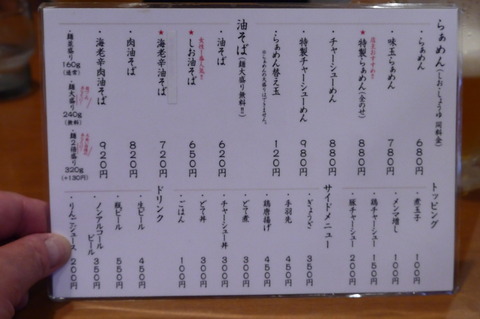 らぁめん(しお・しょうゆ 同料金)
・らぁめん 680円
・味玉らぁめん 780円
店主おすすめ!!
★特製らぁめん(全のせ) 880円
・チャーシューめん 880円
・特製チャーシューめん 980円
・らぁめん替え玉 120円
油そば(麺大盛り無料!!)
・油そば 620円
女性1番人気!!
★しお油そば 650円
★海老辛油そば 720円
・肉油そば 820円
・海老辛肉油そば 920円
・麺並盛り 160g (通常)
・麺大盛り 240g (無料)
・麺2倍盛り 320g (+130円)
トッピング
・煮玉子 100円
・メンマ増し 100円
・鶏チャーシュー 150円
・豚チャーシュー 200円
サイドメニュー
・ぎょうざ 350円
・手羽先 450円
・鶏唐揚げ 450円
・どて煮 300円
・チャーシュー丼 300円
・どて丼 300円
・ごはん 100円
ドリンク
・生ビール 450円
・瓶ビール 550円
・ノンアルコールビール 350円
・りんごジュース 200円